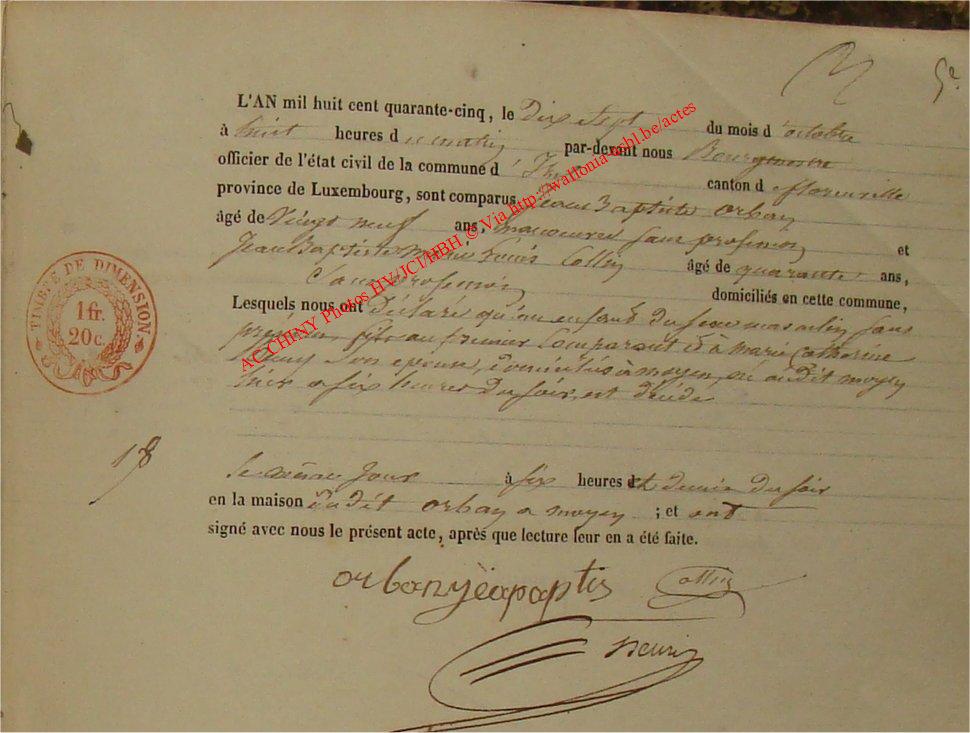 5e
L'AN mil huit cent quarante-cinq, le Dix Sept du mois d'octobre
à huit heures du matin par-devant nous Bourgmestre
officier de l'état civil de la commune d' canton de florenville
province de Luxembourg, sont comparus Jean Baptiste orban
âgé de Vingt neuf ans, manoeuvre sans profession et
Jean Baptiste Collin âgé de quarante ans,
Sans profession domiciliés en cette commune,
Lesquels nous ont Déclaré qu'un enfant du sexe masculin sans
prénom, fils au premier Comparant et à marie Catherine
son épouse, domiciliés à moyen, né audit moyen
hier a six heures du soir, est décédé
18
le même jour à six heures et demie du soir
en la maison du dit orban a moyen ; et ont
signé avec nous le présent acte, après que lecture leur en a été faite.
orbanjëapaptis Collin
henrin
TIMBRE DE DIMENSION
1 fr.
20 c.
AC CHINY Photos HV/JCI/HBH © Via http://wallonia-asbl.be/actes